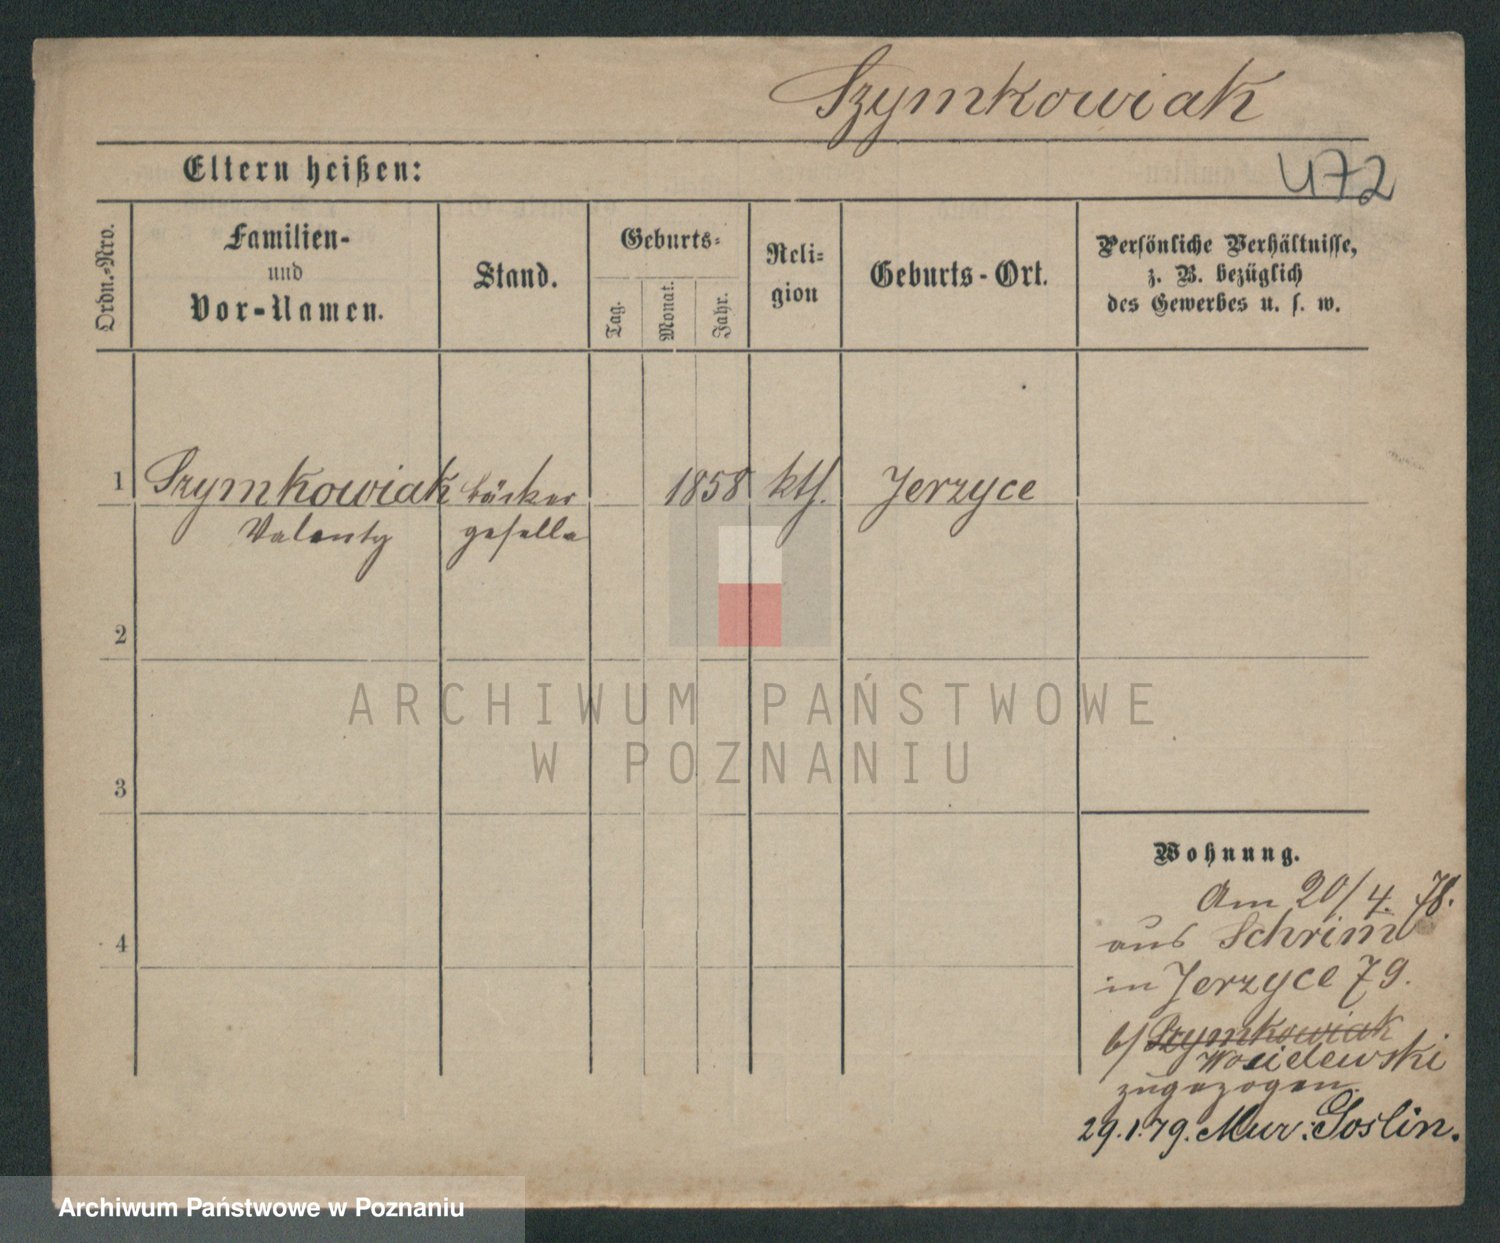 Szymkowiak
472
Eltern heißen:
Ordn.-Nro.
Familien-
und
Vor-Namen.
Stand.
Geburts-
Tag.
Monat.
Jahr.
Reli-
gion
Geburts-Ort.
Persönliche Verhältnisse,
z. B. bezüglich
des Gewerbes u. s. w.
1 Szymkowiak bäcker 1858 kth. Jerzyce
Valenty geselle
2
ARCHIWUM PAŃSTWOWE
W POZNANIU
3
Wohnung.
Am 20/4. 78.
aus Schrim
in Jerzyce 79.
b/ Szymkowiak
zugezogen.
4
29.1.79. Mur: Goslin.
Archiwum Państwowe w Poznaniu